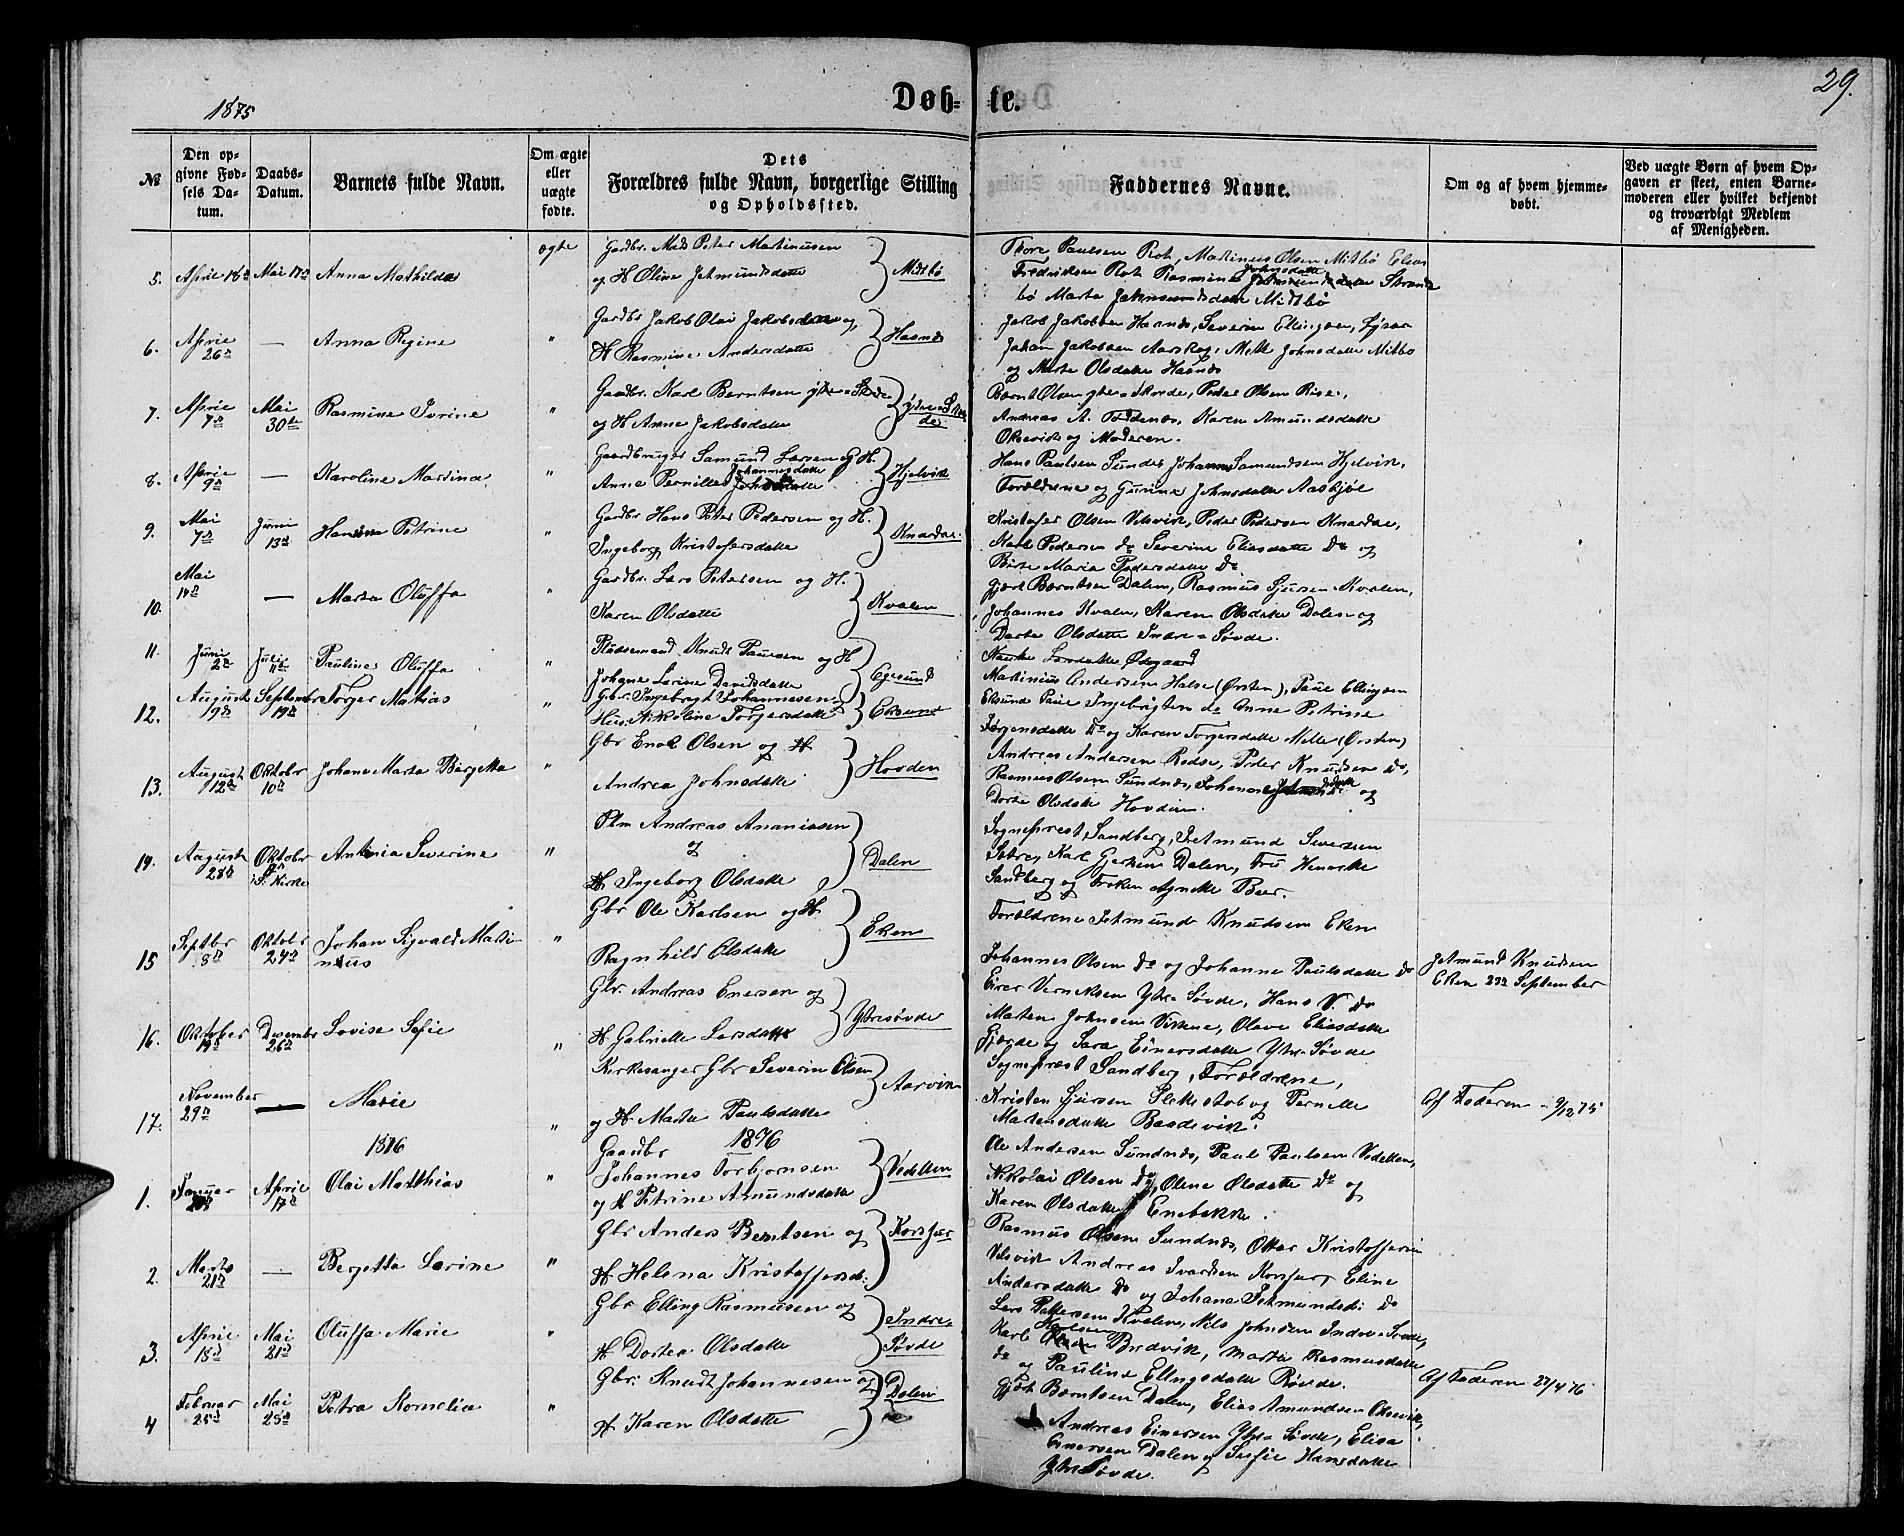 1875
Døb-
te.
29.
№
Den op-
givne Fød-
sels Da-
tum.
Daabs-
Datum.
Barnets fulde Navn.
Om ægte
eller
uægte
fødte.
Dets
Forældres fulde Navn, borgerlige Stilling
og Opholdssted.
Faddernes Navne.
Om og af hvem hjemme-
døbt.
Ved uægte Børn af hvem Op-
gaven er skeet, enten Barne-
moderen eller hvilket bekjendt
og troværdigt Medlem
af Menigheden.
5. April 18d Mai 17d Anna Mathilda ægte
Gardbr. Mads Peter Martinusen
og H Oline Jetmundsdatte
Midtbø
Thore Paulsen Rot, Martinus Olsen Mitbø Elias
Fredriksen Rot Rasmine Johnsdatte Strand
bø Marta Jetmundsdatte Midtbø
6. April 26d — Anna Regine "
Gardbr Jakob Olai Jakobsen og
H Rasmine Andersdatte
Haanes
Jakob Jakobsen Haanes, Severin Ellingsen,
Johan Jakobsen Aarskog, Mette Johnsdatte Mitbø
og Marte Olsdatte Haanes
7. April 7d Mai 30te Rasmine Ivrine "
Gaardbr. Karl Berntsen ytre-Søvde
og H Anne Jakobsdatte
Bernt Olsen ytre-Søvde, Peder Olsen Rise,
Andreas A. Karen Amundsdatte
Oksevik og Moderen.
8. April 9d — Karoline Martina "
Gaardbruger Samund Larsen og H.
Anne Pernille Johannesdatte
Hjelvik
Hans Paulsen Sundes Johannes Samundsen Hjelvik,
Forældrene og Gurine Johnsdatte Aaskjøl
9. Mai 7d Juni 13d Hansine Petrine "
Gardbr Hans Peter Pedersen og H.
Ingeborg Kristofersdatte
Knardal
Kristofer Olsen Velsvik, Peder Pedersen Knardal,
Karl Pedersen do Severine Eliasdatte Do og
Birte Maria Pedersdatte Do
10. Mai 14d — Marta Oluffa "
Gardbr. Lars Petersen og H.
Karen Olsdatte
Kvalen
Gjert Berntsen Dalen, Rasmus Sjursen Kvalen,
Johannes Kvalen, Karen Olsdatte Dalen og
Dorte Olsdatte Indre-Søvde.
11. Juni 2d Juli Pauline Oluffa "
Pladsemand Knudt Paulsen og H
Johane Larine Davidsdatte
Egesund
Larsdatte Ødegaard
Martinius Andersen Halse (Ørsten), Paul Ellingsen
12. August 19d September 19d Torger Mathias "
Gbr. Ingebrigt Johannesen
Hus. Nikoline Torgersdatte
Eksund
Eksund Paul Ingebrigten do Anne Petrine
Jørgensdatte Do og Karen Torgersdatte Melle (Ørsten)
13. August 12d Oktobr 10d Johane Marta Bergitta "
Gbr Enok Olsen og H.
Andrea Johnsdatte
Hovden
Andreas Andersen Rødse, Peder Knudsen Do,
Rasmus Olsen Sundnæs, Johanne og
Dorte Olsdatte Hovden.
14. August 28d Oktobr i S. Kirke Antonia Severine "
Plm Andreas Ananiassen
og
H Ingeborg Olsdatte
Dalen
Sogneprest Sandberg, Jetmund Seversen
Sætre, Karl Gjertsen Dalen, Fru Henrikke
Sandberg og Frøken Agnette Beer.
15 Septbr 8d Oktober 24d Johan Sigvald Marti-
nius "
Gbr Ole Karlsen og H.
Ragnhild Olsdatte
Eken
Forældrene Jetmund Knudsen Eken
Johannes Olsen Do og Johanne Paulsdatte Do
Jetmund Knudsen
Eken 23d September
16. Oktober 19d Desember 26d Lovise Sofie "
Gbr. Andreas Enersen og
H Gabrielle Larsdatte
Ytresøvde
Einer Verniksen Ytre Søvde, Hans V. Do
Marten Johnsen Vikene, Olave Eliasdatte
Gjærde og Sara Einersdatte Ytre Søvde
17. November 29d — Marie "
Kirkesanger Gbr Severin Olsen
og H Marta Paulsdatte
Aarvik
Sogneprest Sandberg, Forældrene,
Kristen Sjursen Slettestøl og Pernille
Martensdatte Baadsvik.
Af Faderen 9/12 75
1876
1876
1. Januar April 17d Olai Matthias "
Gaardbr
Johannes Torbjørnsen
og H Petrine Amundsdatte
Vedelden
Ole Andersen Sundnæs, Paul Paulsen Vedelden,
Nikolai Olsen Do, Olene Olsdatte Do og
Karen Olsdatte Enebakke.
2. Marts 21d — Bergetta Larine "
Gbr Anders Berntsen og
H Helena Kristoffersd:
Korsfur
Rasmus Olsen Sundnæs, Ottar Kristoffersen
Velsvik Andreas Ivarsen Korsfur, Eline
Andersdatte Do og Johana Jetmundsd: Do
3. April 18d Mai 21d Oluffa Marie "
Gbr Elling Rasmusen og
H Dortea Olsdatte
Indre-
Søvde
Lars Pettersen Kvalen, Nils Johnsen Indre-Søvde,
Karl Bredvik, Marta Rasmusdatte
do og Pauline Ellingsdatte Røvde.
4 Februar 25d Mai 25d Petra Kornelia "
Gbr. Knudt Johannesen og
H Karen Olsdatte
Dalen
Gjert Berntsen Dalen, Elias Amundsen Oksevik,
Andreas Einersen Ytre Søvde, Elisa
Einersen Dalen og Sofie Hansdatte
Ytre Søvde.
Af Faderen 22/4 76